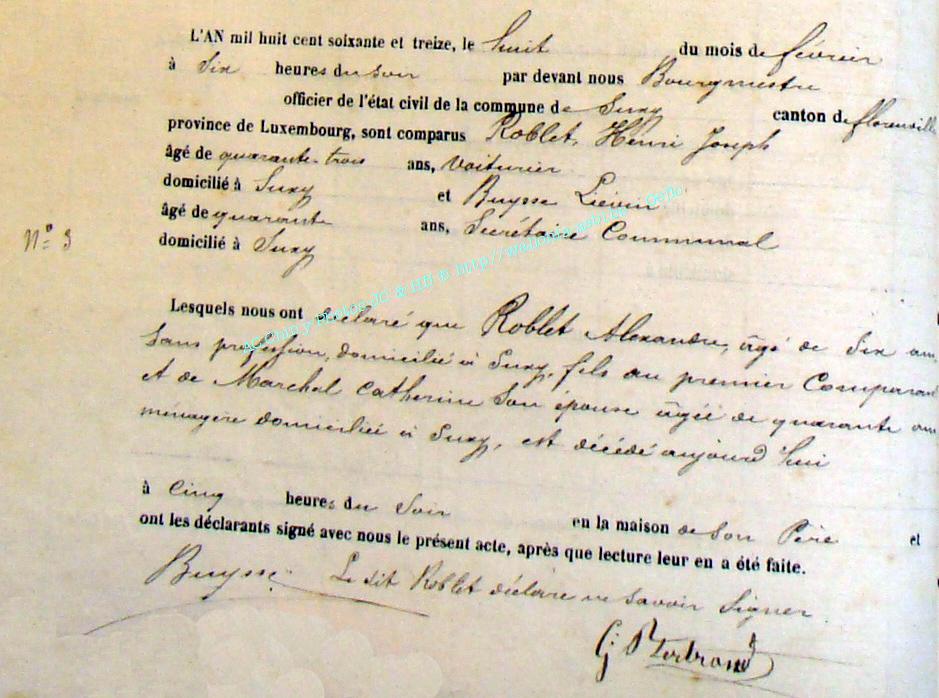 L'AN mil huit cent soixante et treize, le huit du mois de février
à Six heures du soir par devant nous Bourgmestre
officier de l'état civil de la commune de Suxy canton de florenville
province de Luxembourg, sont comparus Roblet, Henri Joseph
âgé de quarante-trois ans, Voiturier
domicilié à Suxy et Buysse Liévin
âgé de quarante ans, Secrétaire Communal
N° 3
domicilié à Suxy
Lesquels nous ont déclaré que Roblet Alexandre, âgé de Six ans,
Sans profession, domicilié à Suxy, fils du premier Comparant
et de Marchal Catherine Son épouse âgée de quarante ans
ménagère domiciliée à Suxy, est décédé aujourd hui
à Cinq heures du Soir en la maison de Son Père et
ont les déclarants signé avec nous le présent acte, après que lecture leur en a été faite.
Buysse. Le dit Roblet déclare ne savoir Signer.
G Bertrand